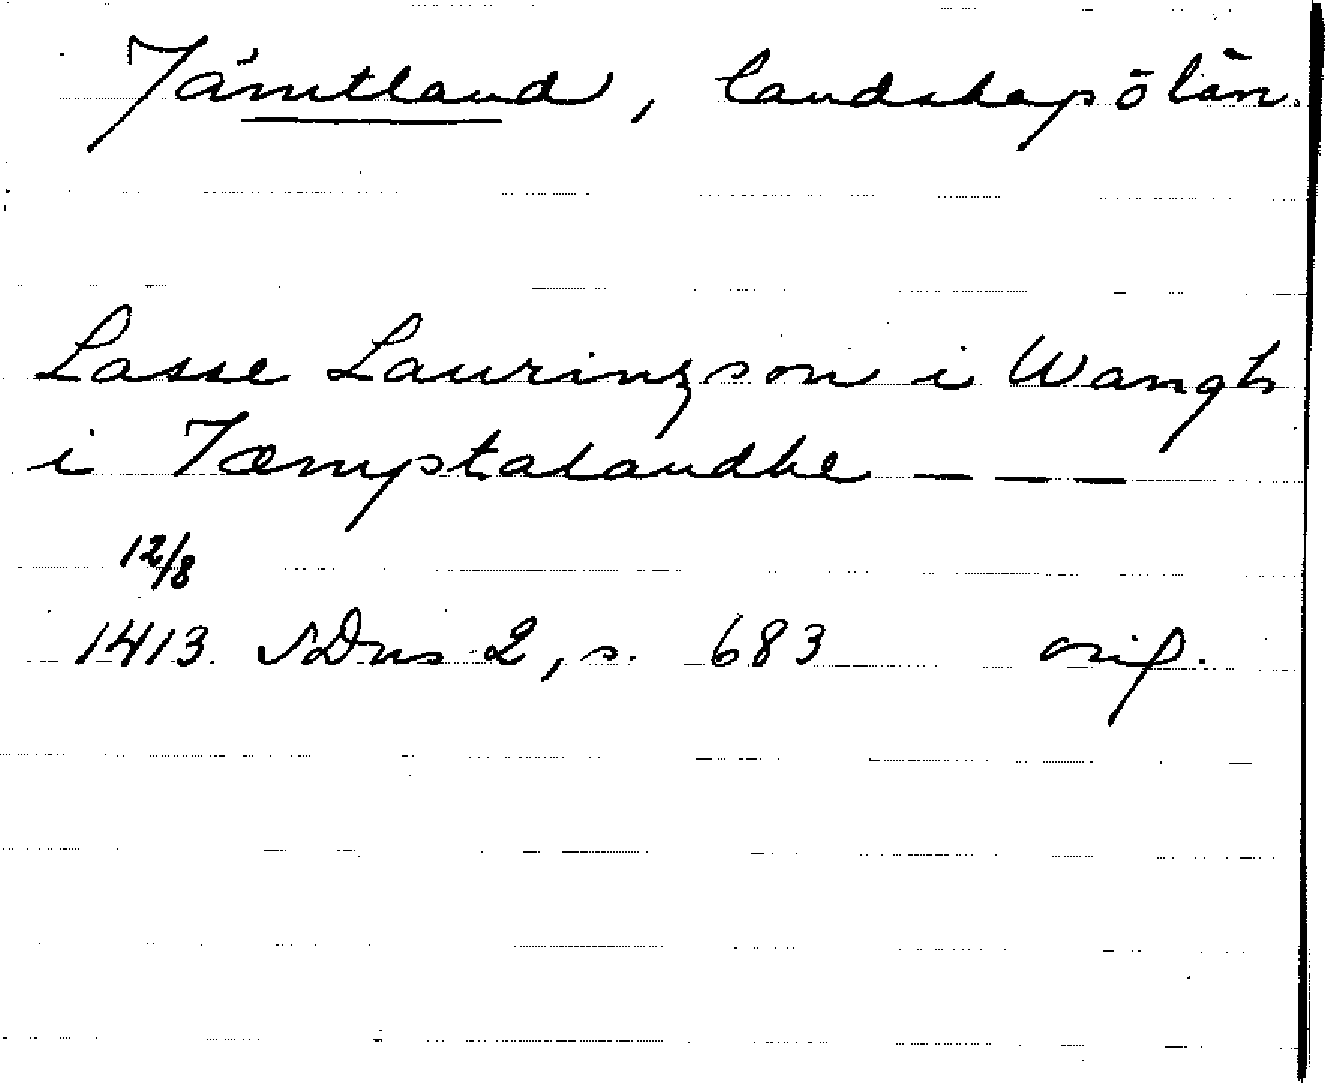 Jämtland, landskap o län.
Lasse Laurinzson i Wangh
i Jæmptalandhe — — —
12/8
1413. SDns 2, s. 683 orig.